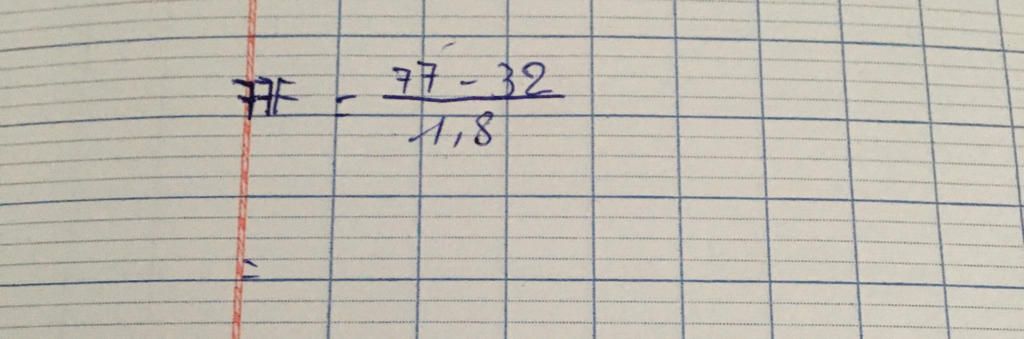 77F = 77 - 32
1,8
=